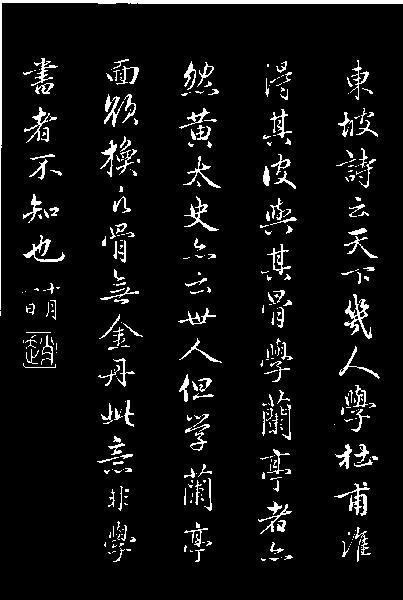 東坡詩云天下幾人學杜甫誰
得其皮與其骨學蘭亭者亦
然黃太史亦云世人但学蘭亭
面欲換凡骨無金丹此意非學
書者不知也十月一日
趙